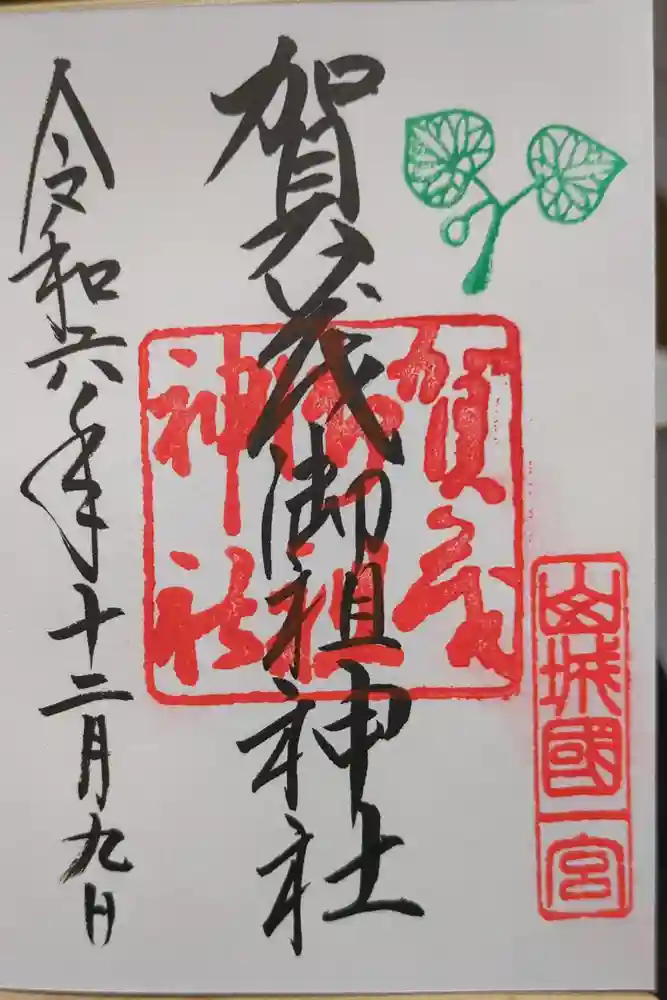 山城國一宮
賀茂御祖神社
賀茂御祖神社
令和六年十二月九日